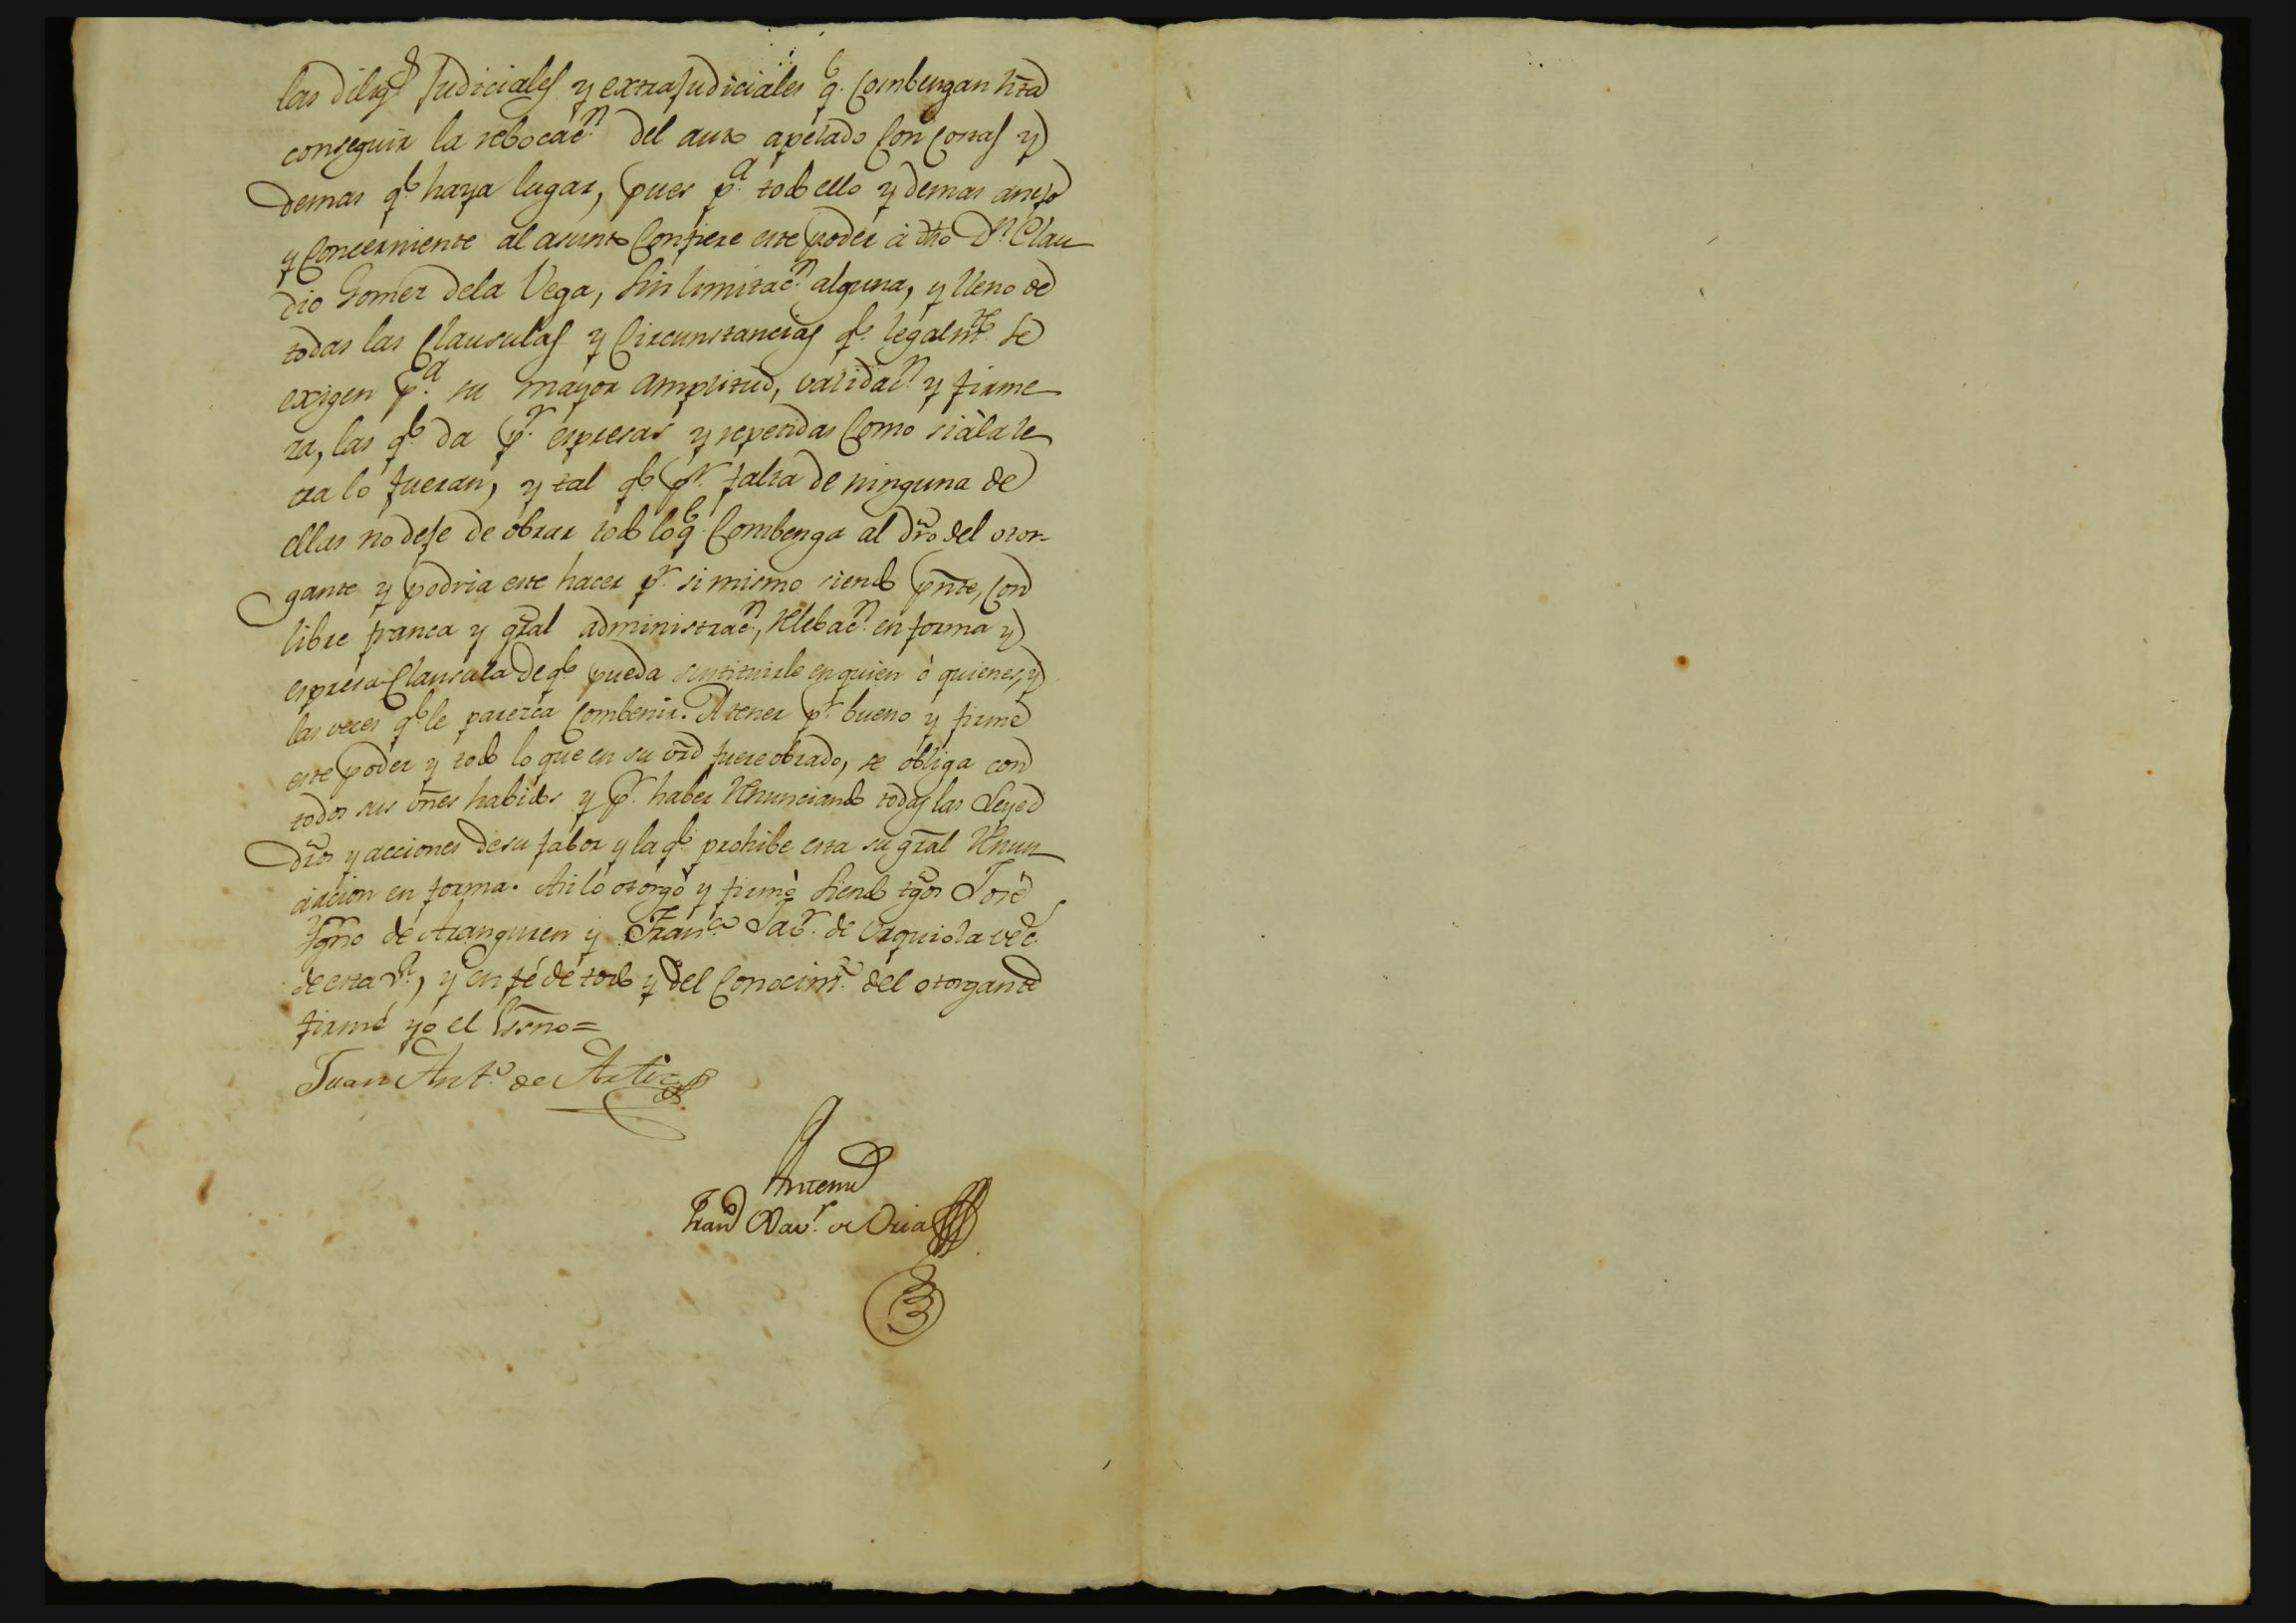 las dilig.s Judiciales y extrajudiciales q.e Combengan hta
conseguir la rebocac.n del auto apelado Con Costas y
demas q.e haya lugar, pues p.a todo ello y demas anejo
y Concerniente al asunto Confiere este poder à dho D.n Clau
dio Gomez dela Vega, Sin limitac.n alguna, y lleno de
todas las Clausulas y Circunstancias q.e legalm.te se
exigen p.a su mayor amplitud, validac.n y firme
za, las q.e da p.r espresas y repetidas Como si àla le
tra lo fueran, y tal q.e p.r falta de ninguna de
ellas no deje de obrar todo loq.e Combenga al dro del otor-
gante y podria este hacer p.r si mismo siendo pnte, Con
libre franca y gral administrac.n, relebac.n en forma y
espresa Clausula deq.e pueda sustituirle en quien ò quienes, y
las veces q.e le parezca Combenir. A tener p.r bueno y firme
este poder y todo lo que en su vrd fuere obrado, se obliga con
todos sus vnes habidos y p.r haber renunciando todas las Leyes
dros y acciones desu fabor y la q.e prohibe esta su gral renun
ciacion en forma. Asi lo otorgò y firmò Siendo tgos José
Ygno de Aranguren y Fran.co Jab.r de Urquiola vec.s
de esta v.a, y en fé de todo y del Conocim.to del otorgante
firmé yo el Essno=
Juan Ant.o de
Antemi
Fran.co Xav.r de Oria